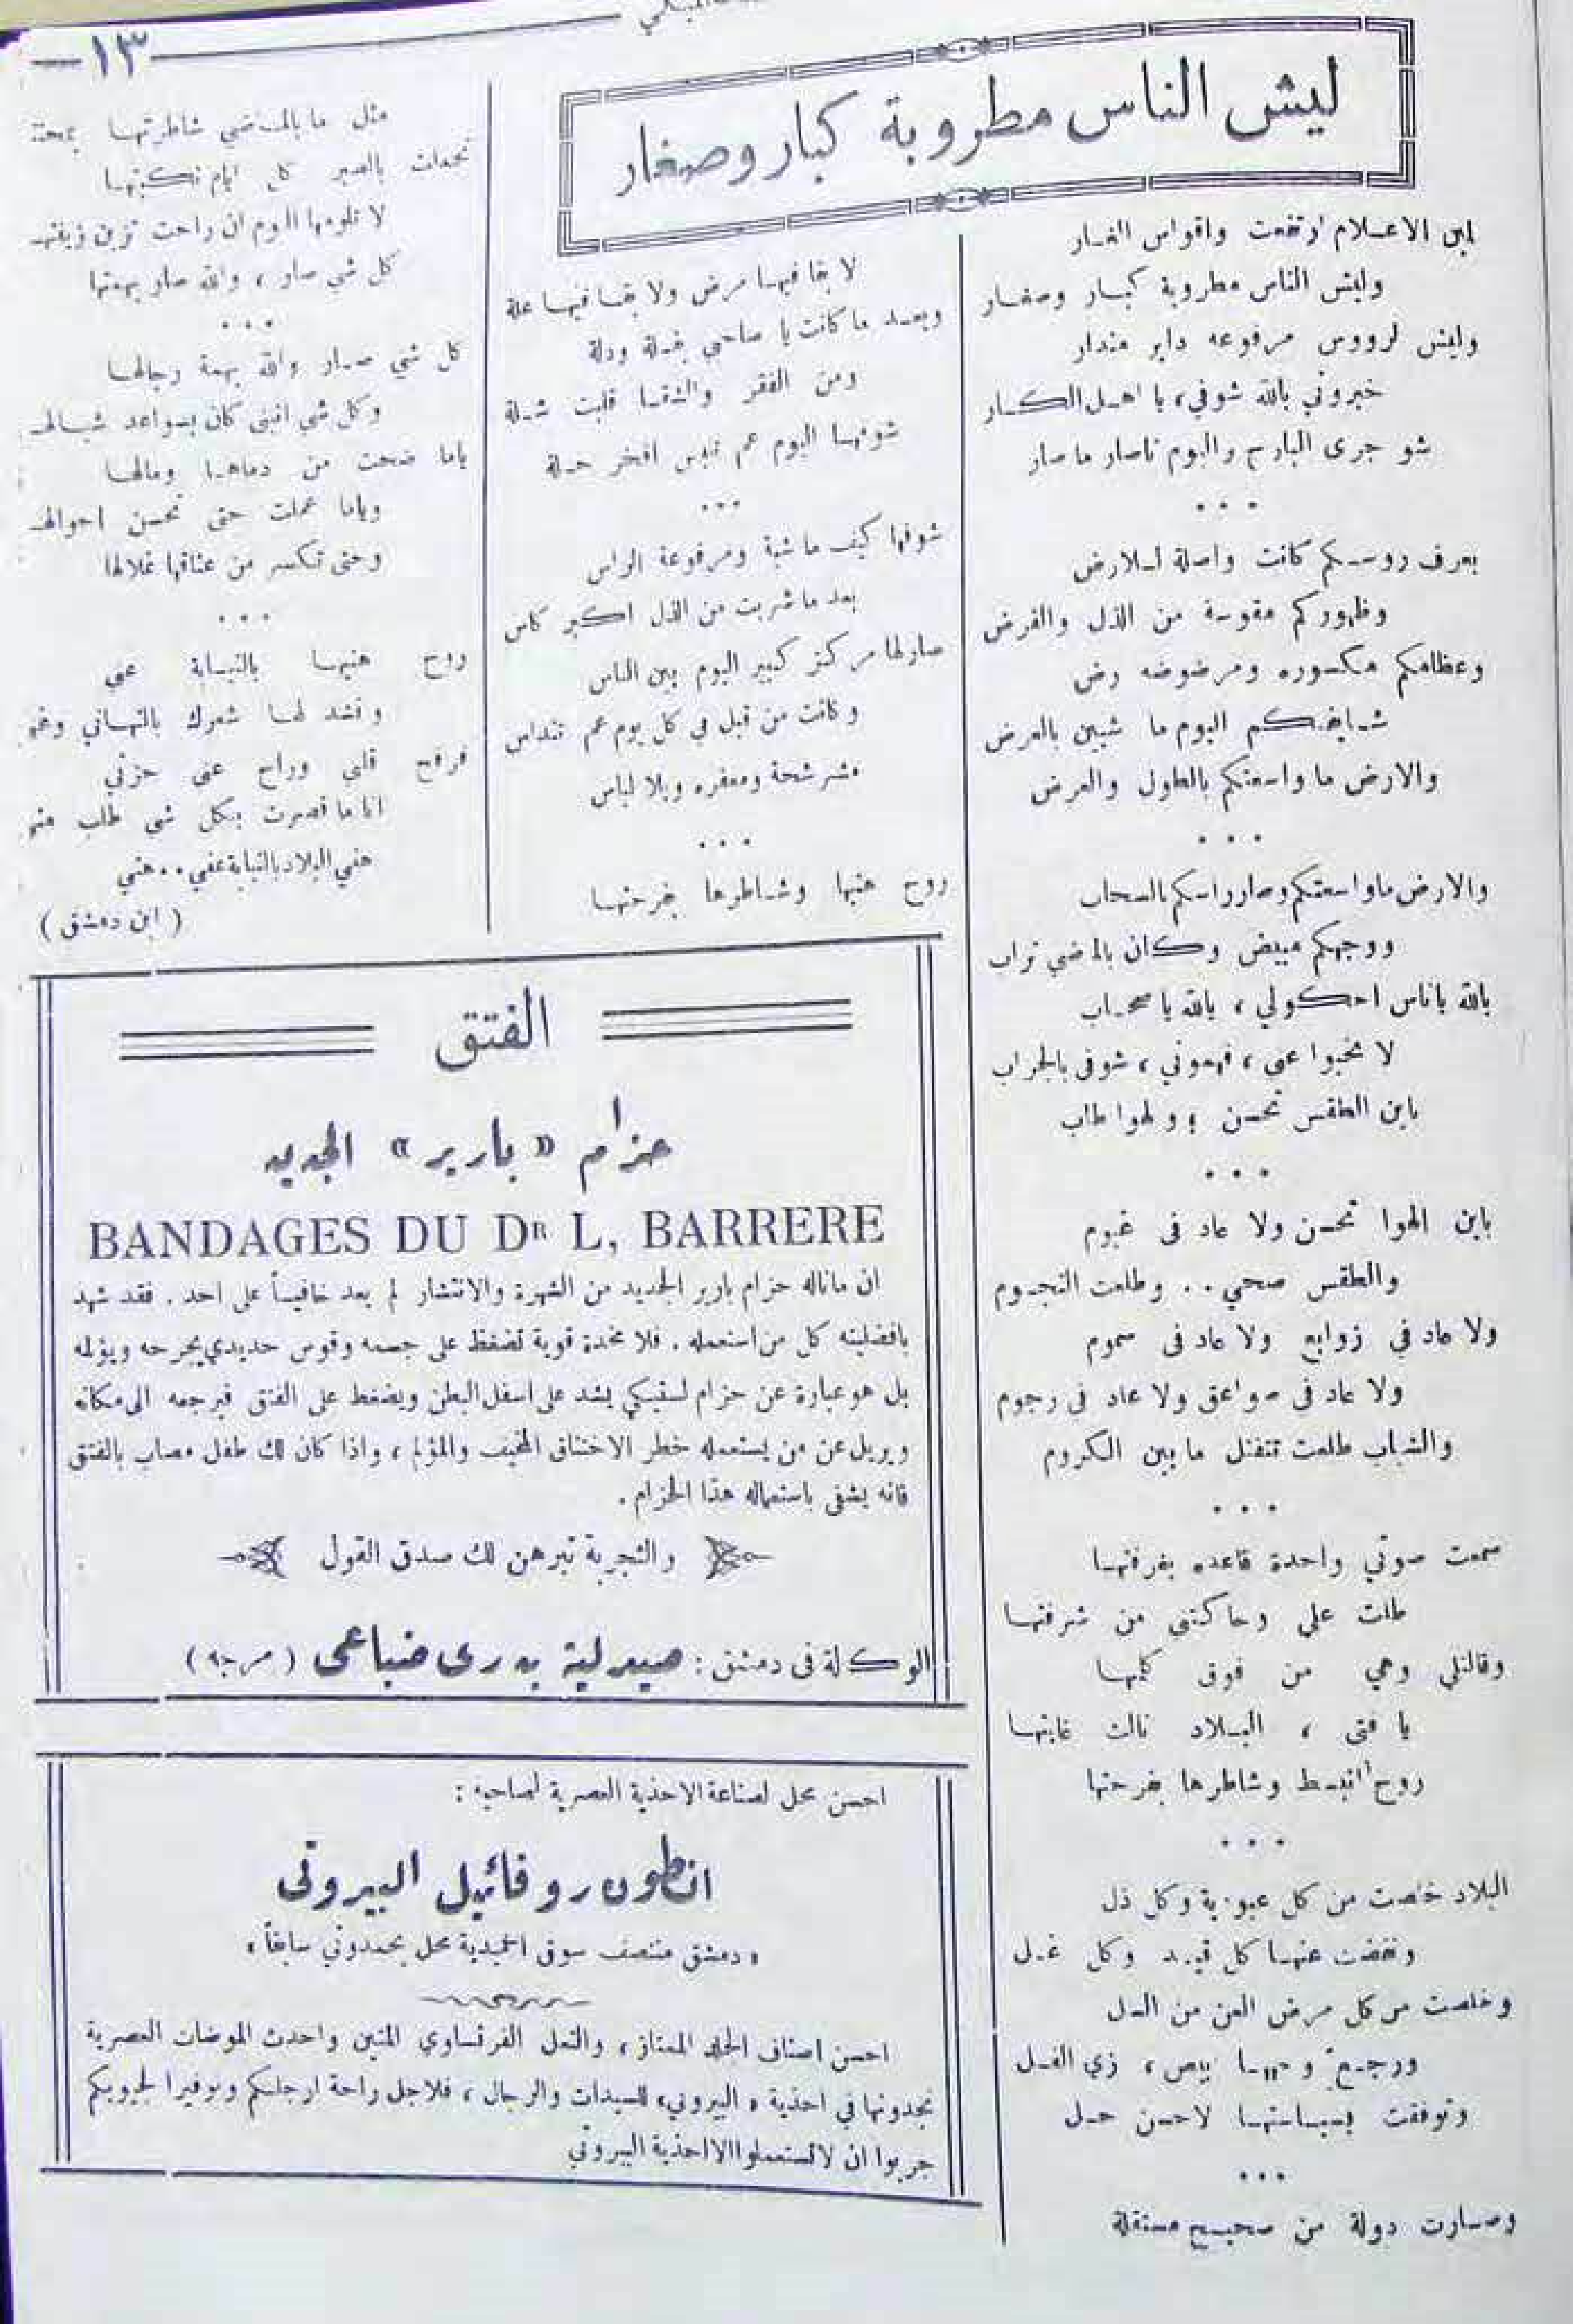 — ١٣ —
ليش الناس مطروبة كبار وصغار
ليش الاعلام ارتفعت واقواس الغار
وليش الناس مطروبة كبار وصغار
وليش لرووس مرفوعه داير مندار
خبروني بالله شوفي، يا اهل الكار
شو جرى البارح واليوم ناصار ما صار
٠ ٠ ٠
بعرف روسكم كانت واصلة للارض
وظهوركم مقوسة من الذل والفرض
وعظامكم مكسوره ومرضوضه رض
شايفكم اليوم ما شيين بالعرض
والارض ما واسعتكم بالطول والعرض
٠ ٠ ٠
والارض ماواسعتكم وصار راسكم بالسحاب
ووجهكم مبيض وكان بالماضي تراب
بالله ياناس احكولي، بالله يا صحاب
لا تخبوا عني، فهموني، شوفى بالجراب
باين الطقس تحسن ؛ ولهوا طاب
٠ ٠ ٠
باين الهوا تحسن ولا عاد فى غيوم
والطقس صحي . . وطلعت النجوم
ولا عاد في زوابع ولا عاد فى سموم
ولا عاد فى صواعق ولا عاد فى رجوم
والشباب طلعت تتفتل ما بين الكروم
٠ ٠ ٠
سمعت صوتي واحدة قاعده بغرفتها
طلت علي وحاكتني من شرفتها
وقالتلي وهي من فوق
يا فتى ، البلاد نالت غايتها
روح انبسط وشاطرها بفرحتها
٠ ٠ ٠
البلاد خلصت من كل عبودية وكل ذل
ونفضت عنها كل قيد وكل غل
وخلصت من كل مرض العن من السل
ورجع وجهها ابيض، زي الفل
وتوفقت بسياستها لاحسن حل
٠ ٠ ٠
وصارت دولة من صحيح مستقلة
لا بقا فيها مرض ولا بقا فيها علة
وبعد ما كانت يا صاحبي بذلة ودلة
ومن الفقر والشقا قلبت شلة
شوفها اليوم عم تلبس افخر حلة
٠ ٠ ٠
شوفها كيف ماشية ومرفوعة الراس
بعد ما شربت من الذل اكبر كاس
صار لها مركز كبير اليوم بين الناس
وكانت من قبل في كل يوم عم تنداس
مشرشحة ومعفره وبلا لباس
٠ ٠ ٠
روح هنيها وشاطرها بفرحتها
مثل ما بالماضي شاطرتها بمحنتها
تحملت بالصبر كل ايام نكبتها
لا تلومها اليوم ان راحت تزين زينتها
كل شي صار، والله صار بهمتها
٠ ٠ ٠
كل شي صار والله بهمة رجالها
وكل شي انبنى كان بسواعد شبالها
ياما ضحت من دماها ومالها
وياما عملت حتى تحسن احوالها
وحتى تكسر من عناقها غلالها
٠ ٠ ٠
روح هنيها بالنيابة عني
ونشد لها شعرك بالتهاني وغني
فرفح قلبي وراح عني حزني
انا ما قصرت بكل شي طلب مني
هني البلاد بالنيابة عني . . هني
( ابن دمشق )
الفتق
حزام «بارير» الجديد
BANDAGES DU DR L, BARRERE
ان ماناله حزام بارير الجديد من الشهرة والانتشار لم يعد خافياً على احد . فقد شهد
بافضليته كل من استعمله . فلا مخدة قوية تضغط على جسمه وقوس حديدي يجرحه ويؤلمه
بل هو عبارة عن حزام لستيكي يشد على اسفل البطن ويضغط على الفتق فيرجعه الى مكانه
ويزيل عن من يستعمله خطر الاختناق المخيف والمؤلم، واذا كان لك طفل مصاب بالفتق
فانه يشفى باستعماله هذا الحزام .
والتجربة تبرهن لك صدق القول
الوكالة فى دمشق : صيدلية بدرى ضباعى ( مرجه )
احسن محل لصناعة الاحذية العصرية لصاحبه :
انطون روفائيل البيروتى
«دمشق منتصف سوق الحميدية محل بحمدوني سابقاً»
احسن اصناف الجلد الممتاز، والنعل الفرنساوي المتين واحدث الموضات العصرية
تجدونها في احذية «البيروتي» للسيدات والرجال، فلاجل راحة ارجلكم وتوفيرا لجيوبكم
جربوا ان لا تستعملوا الا احذية البيروتي